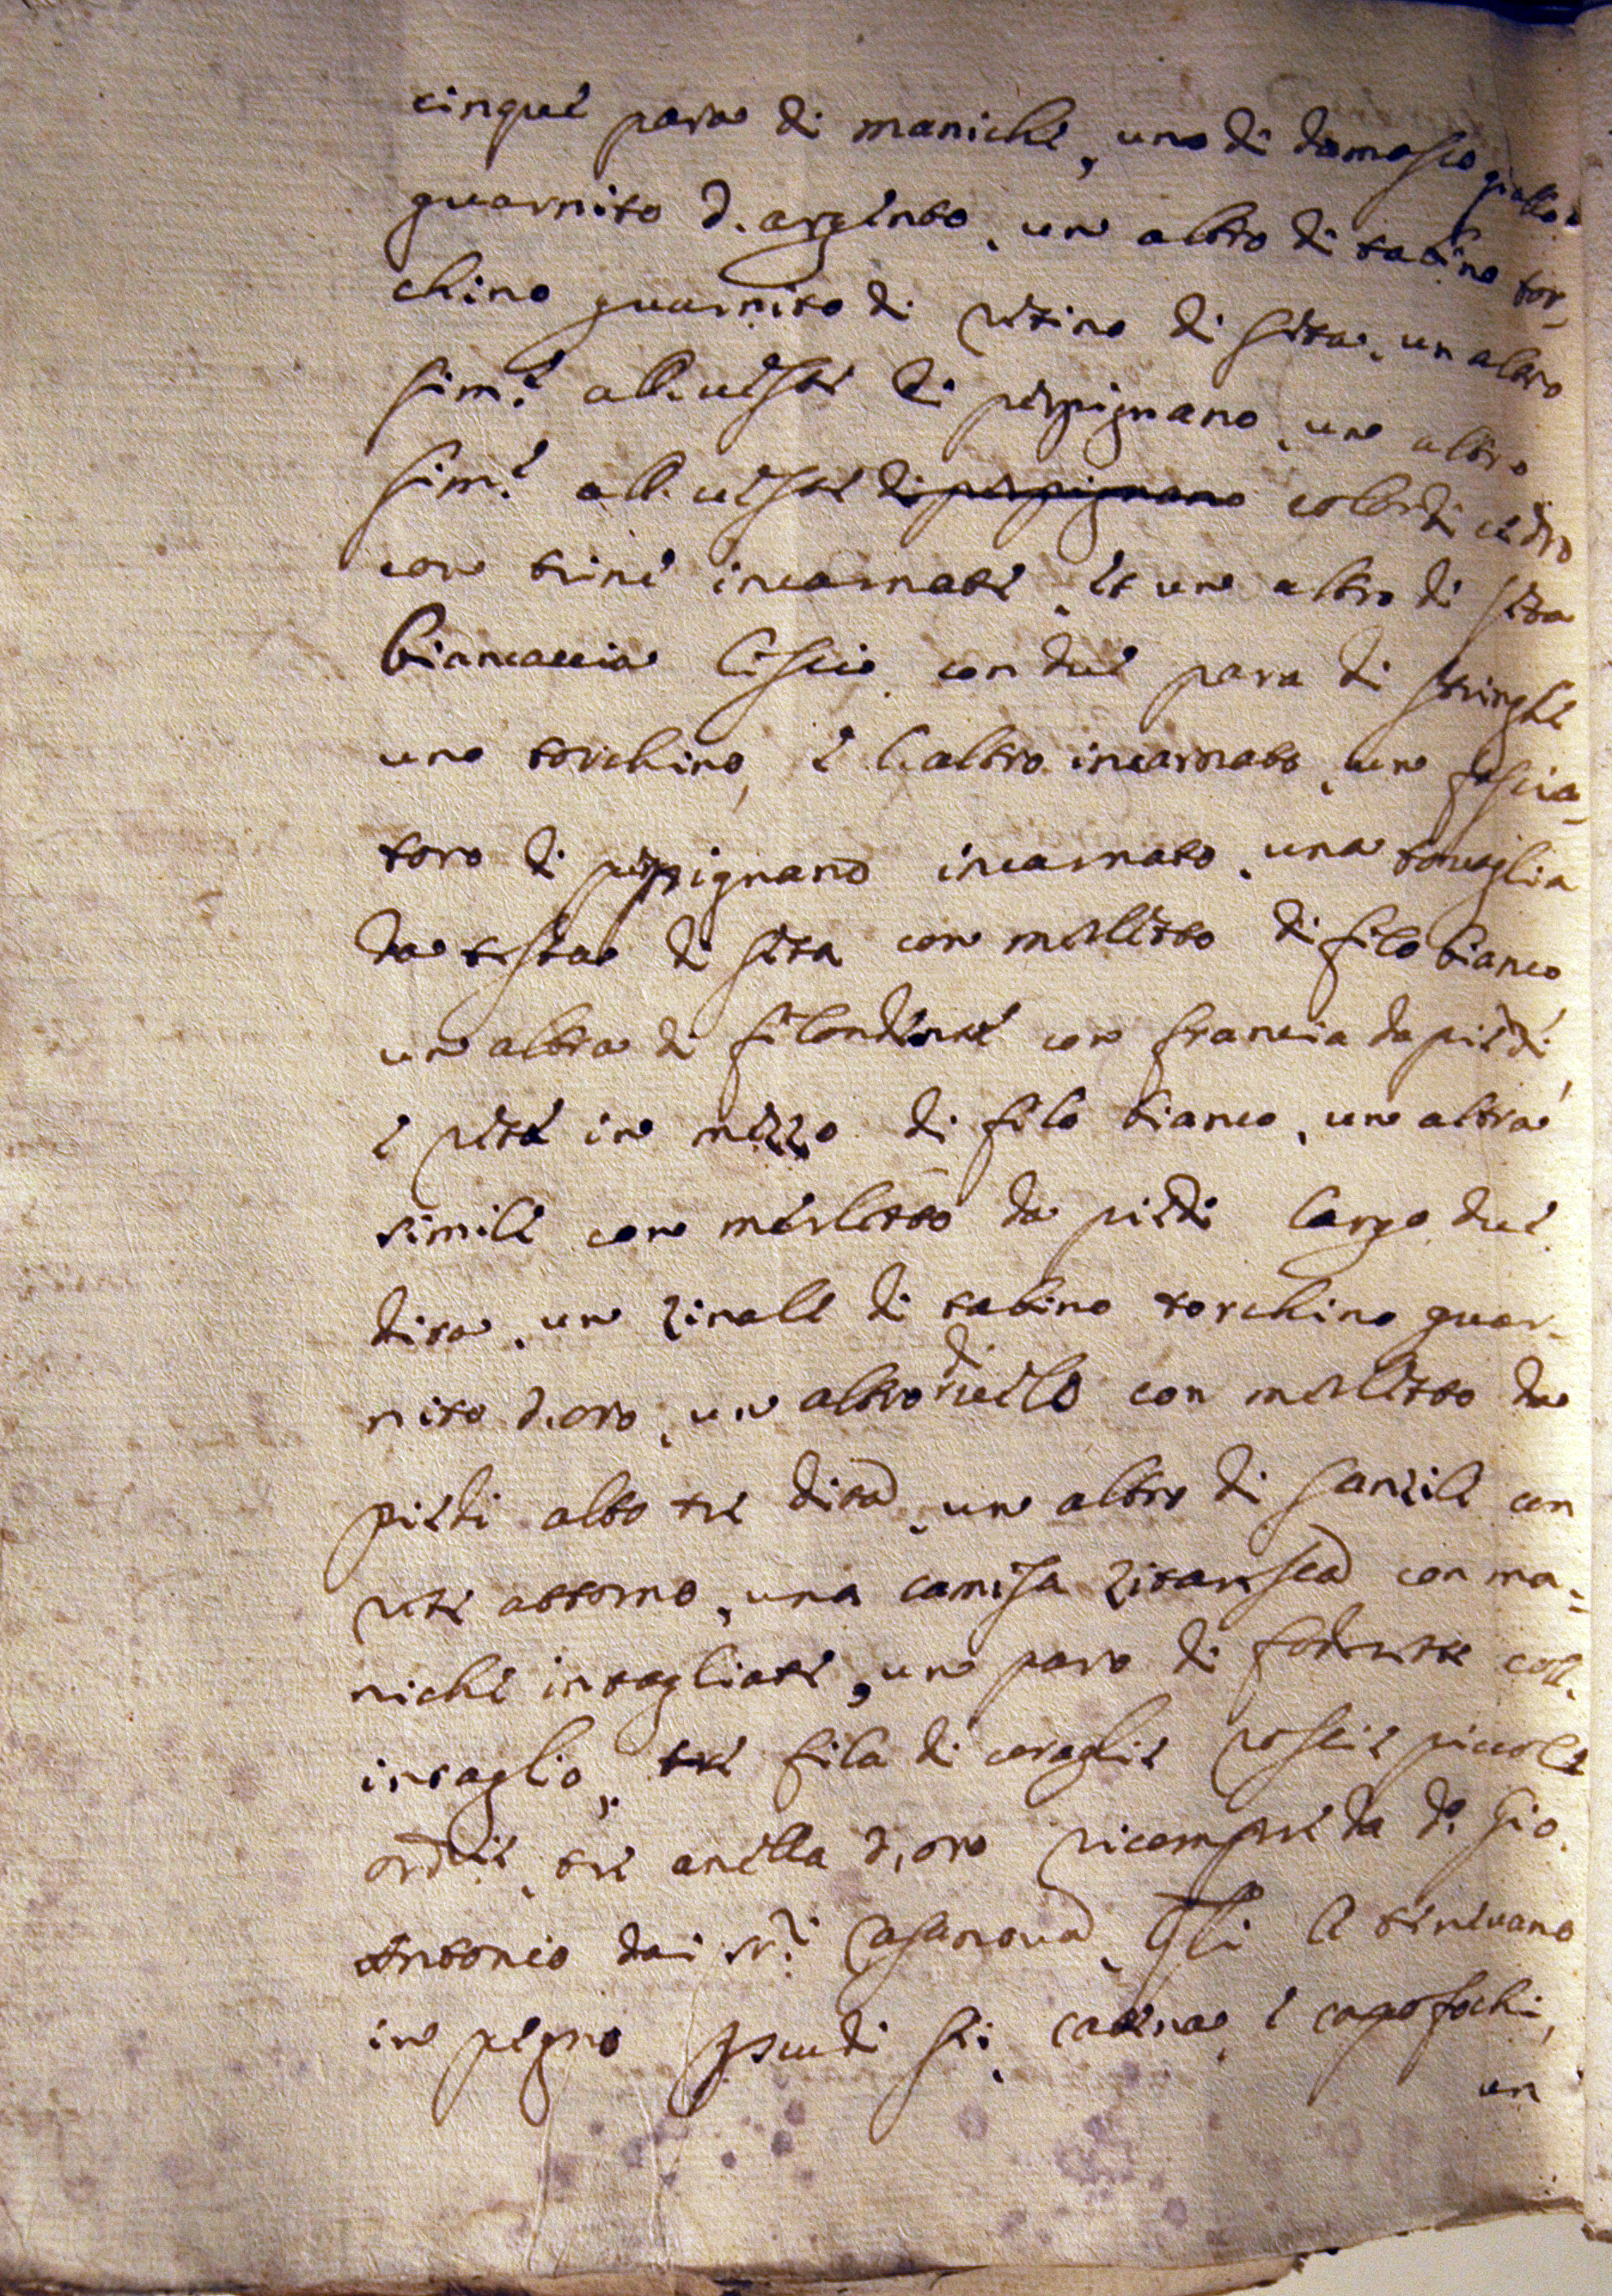 cinque para di maniche, uno di damasco giallo
guarnito d'argento, un altro di tabino tor-
chino guarnito di retino di seta, un altro
sim.e all. veste di perpignano, un altro
sim.e all. veste di perpignano color di cedro
con trine incarnate, et un altro di seta
biancaccia liscie, con due para di stringhe
uno torchino, e l'altro incarnato, un fascia-
toro di perpignano incarnato, una tovaglia
da testa di seta con merletto di filo bianco
un altra di filondente con francia da piedi,
e rete in mezzo di filo bianco, un altra
simile con merletto da piedi largo due
dita, un zinale di tabino torchino guar-
nito d'oro, un altro di velo con merletto da
piedi alto tre dita, un altro di sanzile con
rete attorno, una camisa zitaresca con ma-
niche intagliate, un paro di foderette coll.
intaglio, tre fila di coraglie roscie piccole
tre anella d'oro ricomprate da d.o Gio.
Antonio dai ss.ri Casanova, che li tenevano
in pegno scudi sei, catena, e capofochi,
un